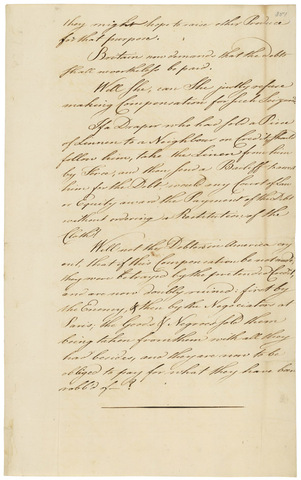 they might hope to raise other Produce
for that purpose.
Britain now demands that the Debts
shall nevertheless be paid.
Will She, can She justly refuse
making Compensation for such
If a Draper who had sold a Piece
of Linnen to a Neighbour on Credit, should
follow him, take the Linnen from him
by Force, and then send a Bailiff to arrest
him for the Debt, would any Court of Law
or Equity award the Payment of the Debt
without ordering a Restitution of the
Cloth?
Will not the Debtors in America cry
out, that if this Compensation be not made,
they were betrayed by the pretended Credit,
and are now doubly ruined, first by
the Enemy, & then by the Negociators at
Paris, the Goods & Negroes sold them
being taken from them with all they
had besides, and they are now to be
obliged to pay for what they have been
robb'd of—?